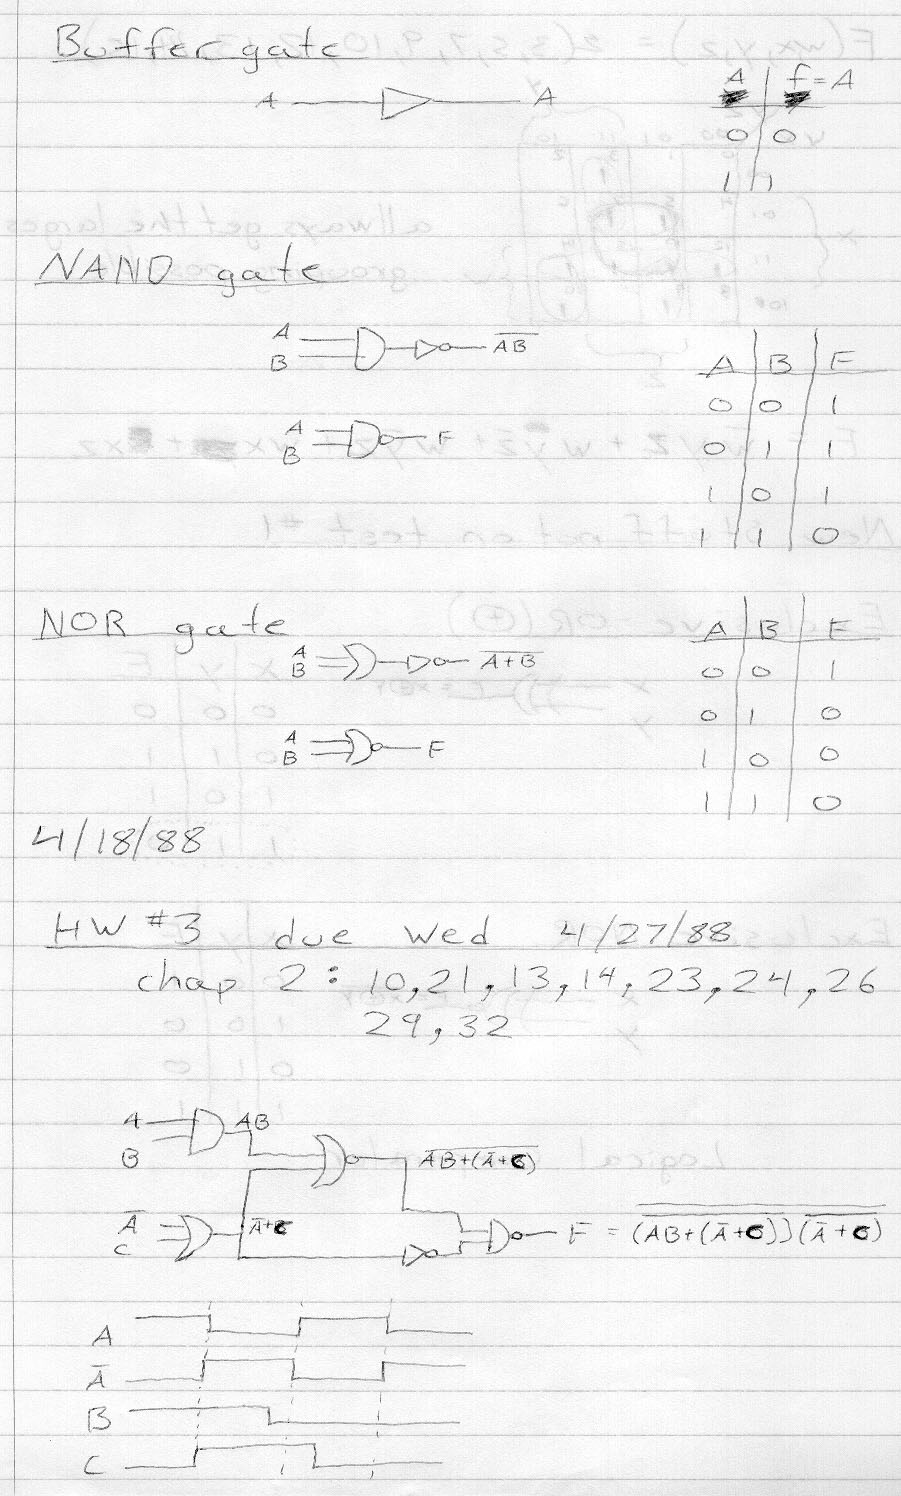 Buffer gate
A A
A f=A
0 0
1 1
NAND gate
A
B
A̅B̅
A B F
0 0 1
0 1 1
1 0 1
1 1 0
A
B
F
NOR gate
A
B
A̅+̅B̅
A B F
0 0 1
0 1 0
1 0 0
1 1 0
A
B
F
4/18/88
HW #3 due Wed 4/27/88
chap 2: 10,21,13,14,23,24,26
29,32
A
B
AB
A̅B̅+̅(̅A̅+̅C̅)̅
A̅
C
A̅+C
F = (AB+(A̅+C))(A̅+C)
A
A̅
B
C